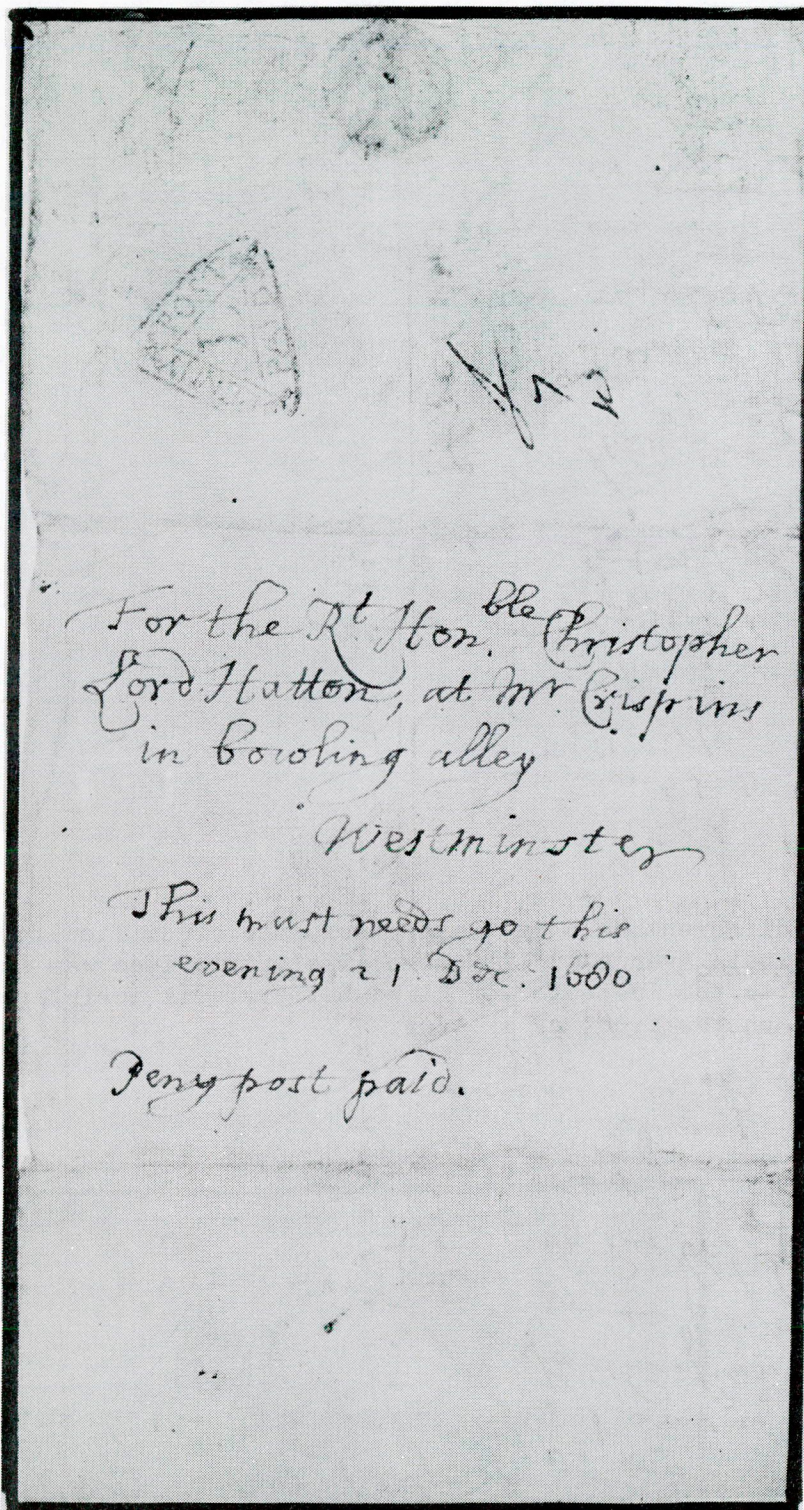 PENY POST PAYD
For the Rt. Hon.ble Christopher
Lord Hatton, at Mr. Crispins
in bowling alley
Westminster
This must needs go this
evening 21 Dec. 1680
Peny post paid.